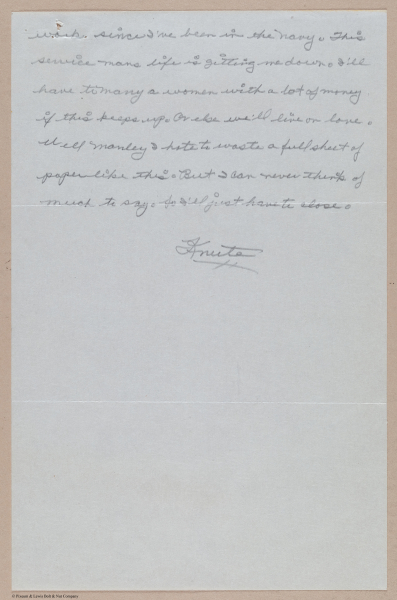 work since I've been in the navy. This
service mans life is gitting me down. I'll
have to marry a women with a lot of money
if this keeps up. Or else we'll live on love.
Well Manley I hate to waste a full sheet of
paper like this. But I can never think of
much to say. So I'll just have to close.
Knute